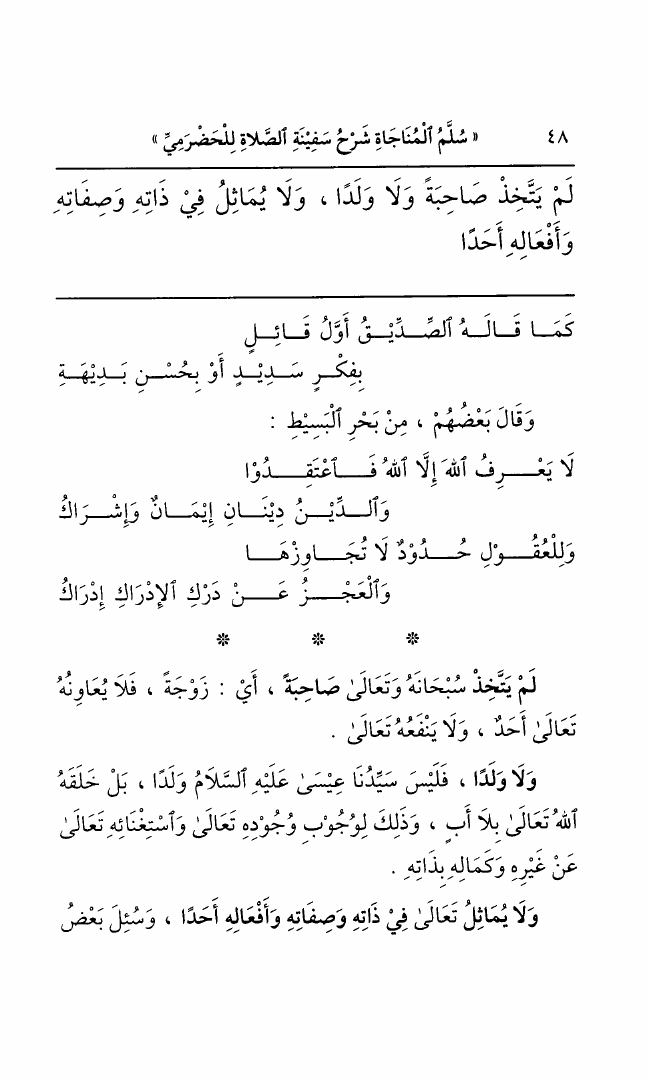 ٤٨ « سُلَّمُ ٱلْمُنَاجَاةِ شَرْحُ سَفِيْنَةِ ٱلصَّلاةِ لِلْحَضْرَمِيِّ »
لَمْ يَتَّخِذْ صَاحِبَةً وَلَا وَلَدًا ، وَلَا يُمَاثِلُ فِيْ ذَاتِهِ وَصِفَاتِهِ
وَأَفْعَالِهِ أَحَدًا
كَمَـا قَـالَـهُ ٱلصِّـدِّيْـقُ أَوَّلُ قَـائِـلٍ
بِفِكْـرٍ سَـدِيْـدٍ أَوْ بِحُسْـنِ بَـدِيْهَـةِ
وَقَالَ بَعْضُهُمْ ، مِنْ بَحْرِ ٱلْبَسِيْطِ :
لَا يَعْـرِفُ ٱللهَ إِلَّا ٱللهُ فَـٱعْتَقِـدُوْا
وَٱلـدِّيْـنُ دِيْنَـانِ إِيْمَـانٌ وَإِشْـرَاكُ
وَلِلْعُقُـوْلِ حُـدُوْدٌ لَا تُجَـاوِزْهَـا
وَٱلْعَجْـزُ عَـنْ دَرْكِ ٱلإِدْرَاكِ إِدْرَاكُ
* * *
لَمْ يَتَّخِذْ سُبْحَانَهُ وَتَعَالَىٰ صَاحِبَةً ، أَيْ : زَوْجَةً ، فَلَا يُعَاوِنُهُ
تَعَالَىٰ أَحَدٌ ، وَلَا يَنْفَعُهُ تَعَالَىٰ .
وَلَا وَلَدًا ، فَلَيْسَ سَيِّدُنَا عِيْسَىٰ عَلَيْهِ ٱلسَّلَامُ وَلَدًا ، بَلْ خَلَقَهُ
ٱللهُ تَعَالَىٰ بِلَا أَبٍ ، وَذَلِكَ لِوُجُوْبِ وُجُوْدِهِ تَعَالَىٰ وَٱسْتِغْنَائِهِ تَعَالَىٰ
عَنْ غَيْرِهِ وَكَمَالِهِ بِذَاتِهِ .
وَلَا يُمَاثِلُ تَعَالَىٰ فِيْ ذَاتِهِ وَصِفَاتِهِ وَأَفْعَالِهِ أَحَدًا ، وَسُئِلَ بَعْضُ